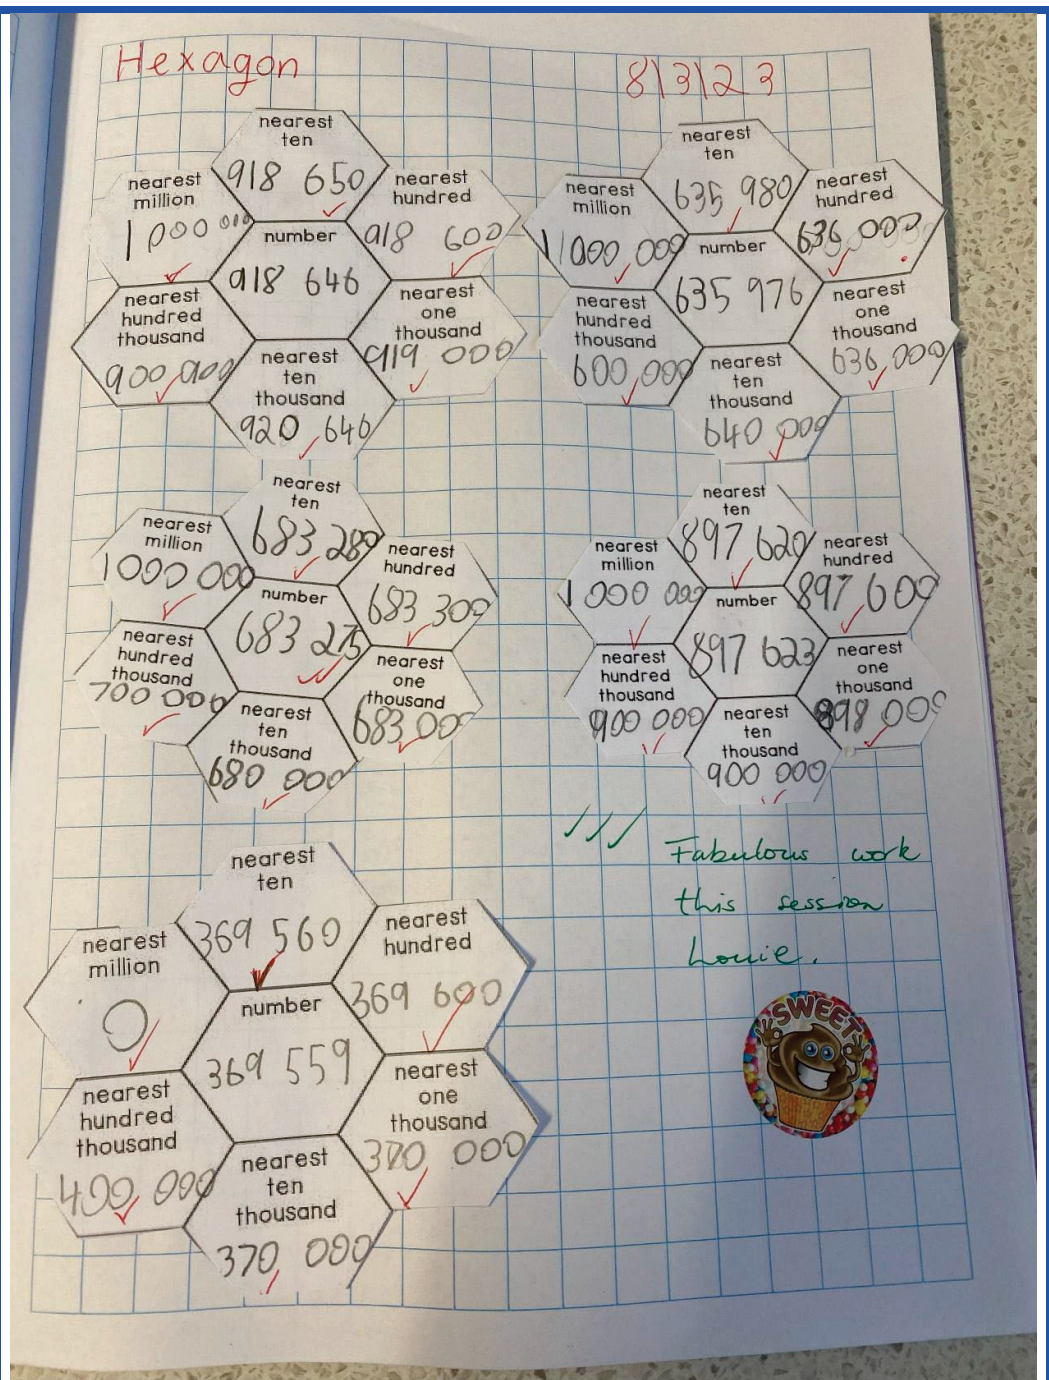 Hexagon
8\3\23
nearest
ten
918 650
nearest
million
1 000 000
nearest
hundred
918 600
number
918 646
nearest
hundred
thousand
900,000
nearest
one
thousand
919 000
nearest
ten
thousand
920 646
nearest
ten
635 980
nearest
million
1 000 000
nearest
hundred
636 000
number
635 976
nearest
hundred
thousand
600,000
nearest
one
thousand
636,000
nearest
ten
thousand
640 000
nearest
ten
683 280
nearest
million
1000 000
nearest
hundred
683 300
number
683 275
nearest
hundred
thousand
700 000
nearest
one
thousand
683 000
nearest
ten
thousand
680 000
nearest
ten
897 620
nearest
million
1 000 000
nearest
hundred
897,600
number
897 623
nearest
hundred
thousand
900 000
nearest
one
thousand
898 000
nearest
ten
thousand
900 000
Fabulous work
this session
Louie.
SWEET
nearest
ten
369 560
nearest
million
0
nearest
hundred
369 600
number
369 559
nearest
hundred
thousand
400,000
nearest
one
thousand
370 000
nearest
ten
thousand
370,000